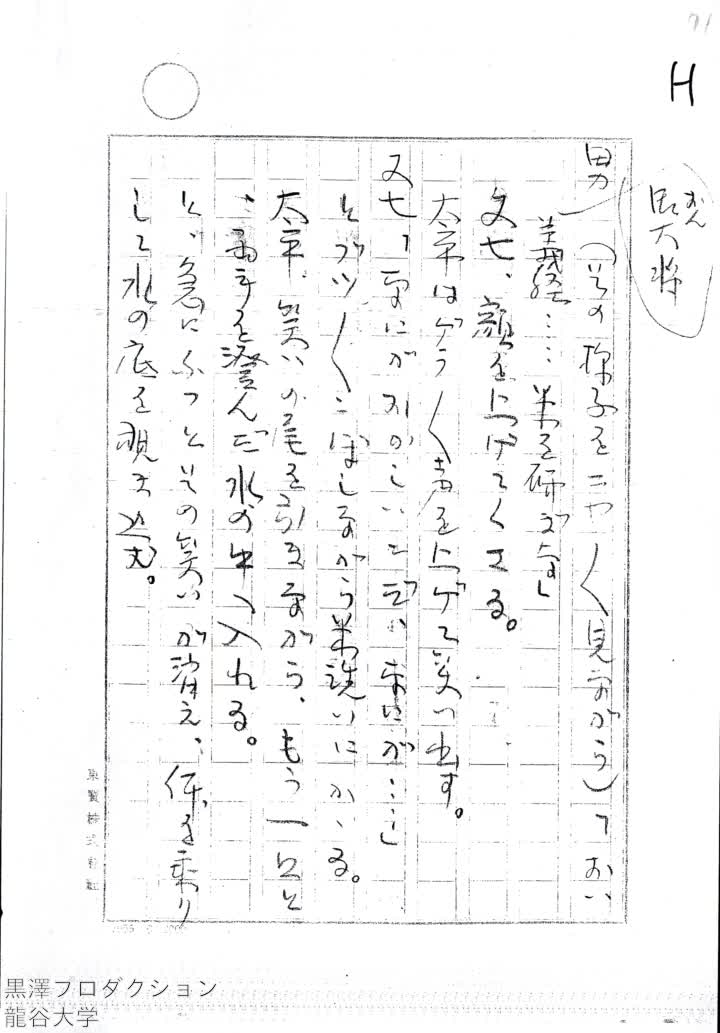 H
男 (その様子をニヤ〱見ながら)「おい
義経…… 米を研ぎな」
又七、顔を上げてくさる。
太平はゲラ〱声を上げて笑い出す。
又七「なにがおかしいんだ、なにが……」
とブツ〱こぼしながら米洗いにかゝる。
太平、笑いの尾を引きながら、もう一口と
両手を澄んだ水の中へ入れる。
と、急にふっとその笑いが消え、体を乗り
して水の底を覗き込む。
東寶株式會社
黒澤プロダクション
龍谷大学